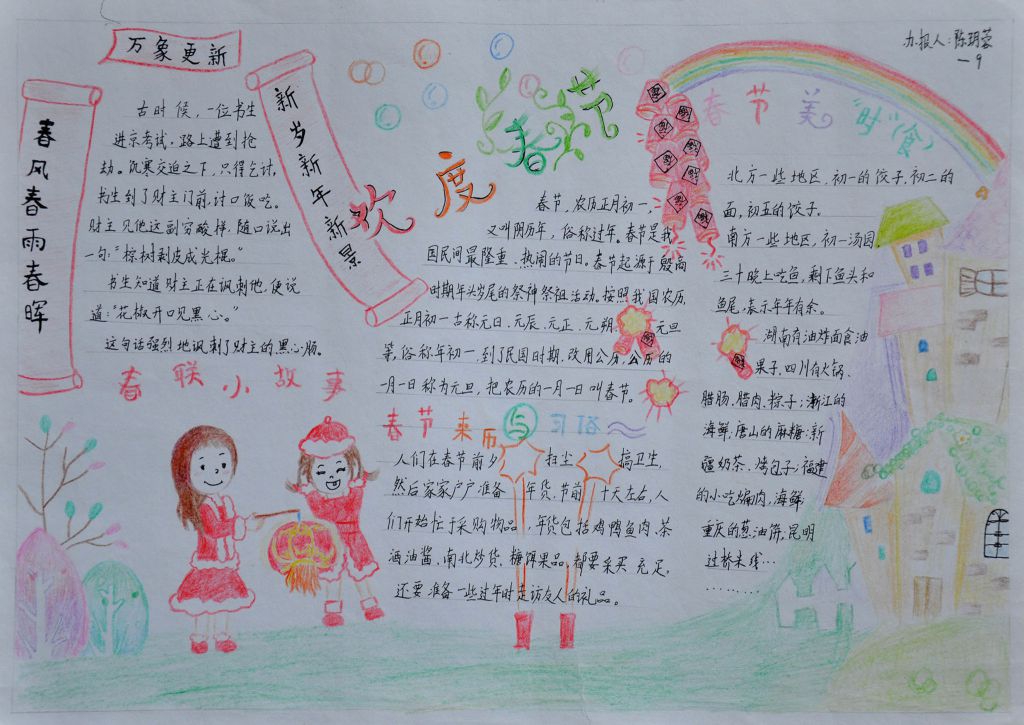 万象更新
春风春雨春晖
新岁新年新景
欢度春节
办报人：陈玥蓉
一9
古时候，一位书生
进京考试。路上遭到抢
劫。饥寒交迫之下，只得乞讨，
书生到了财主门前，讨口饭吃。
财主见他这副穷酸样，随口说出
一句：“棕树剥皮成光棍。”
书生知道财主正在讽刺他，便说
道：“花椒开口见黑心。”
这句话强烈地讽刺了财主的黑心肠。
春联小故事
春节，农历正月初一，
又叫阴历年，俗称过年。春节是我
国民间最隆重、热闹的节日。春节起源于殷商
时期年头岁尾的祭神祭祖活动。按照我国农历，
正月初一古称元日、元辰、元正、元朔、元旦
等，俗称年初一，到了民国时期，改用公历，公历的
一月一日称为元旦，把农历的一月一日叫春节。
春节来历与习俗
人们在春节前夕扫尘搞卫生，
然后家家户户准备年货，节前十天左右，人
们开始忙于采购物品，年货包括鸡鸭鱼肉、茶
酒油酱、南北炒货、糖饵果品，都要采买充足，
还要准备一些过年时走访友人的礼品。
春节美“时”（食）
北方一些地区，初一的饺子，初二的
面，初五的饺子。
南方一些地区，初一汤园，
三十晚上吃鱼，剩下鱼头和
鱼尾，表示年年有余。
湖南有油炸面食油
果子，四川有火锅、
腊肠、腊肉、粽子；浙江的
海鲜；唐山的麻糖；新
疆奶茶、烤包子；福建
的小吃扁肉，海鲜
重庆的葱油饼，昆明
过桥米线…
…………